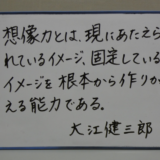 想像力とは、現にあたえら
れているイメージ、固定している
イメージを根本から作りか
える能力である。
大江健三郎